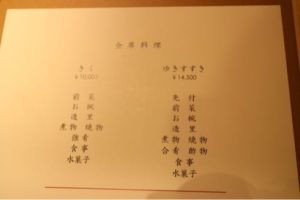 会席料理
きく
¥10,000
前菜
お椀
造里
煮物 焼物
強肴
食事
水菓子
ゆきすずき
¥14,500
先付
前菜
お椀
造里
煮物 焼物
合肴 酢物
食事
水菓子